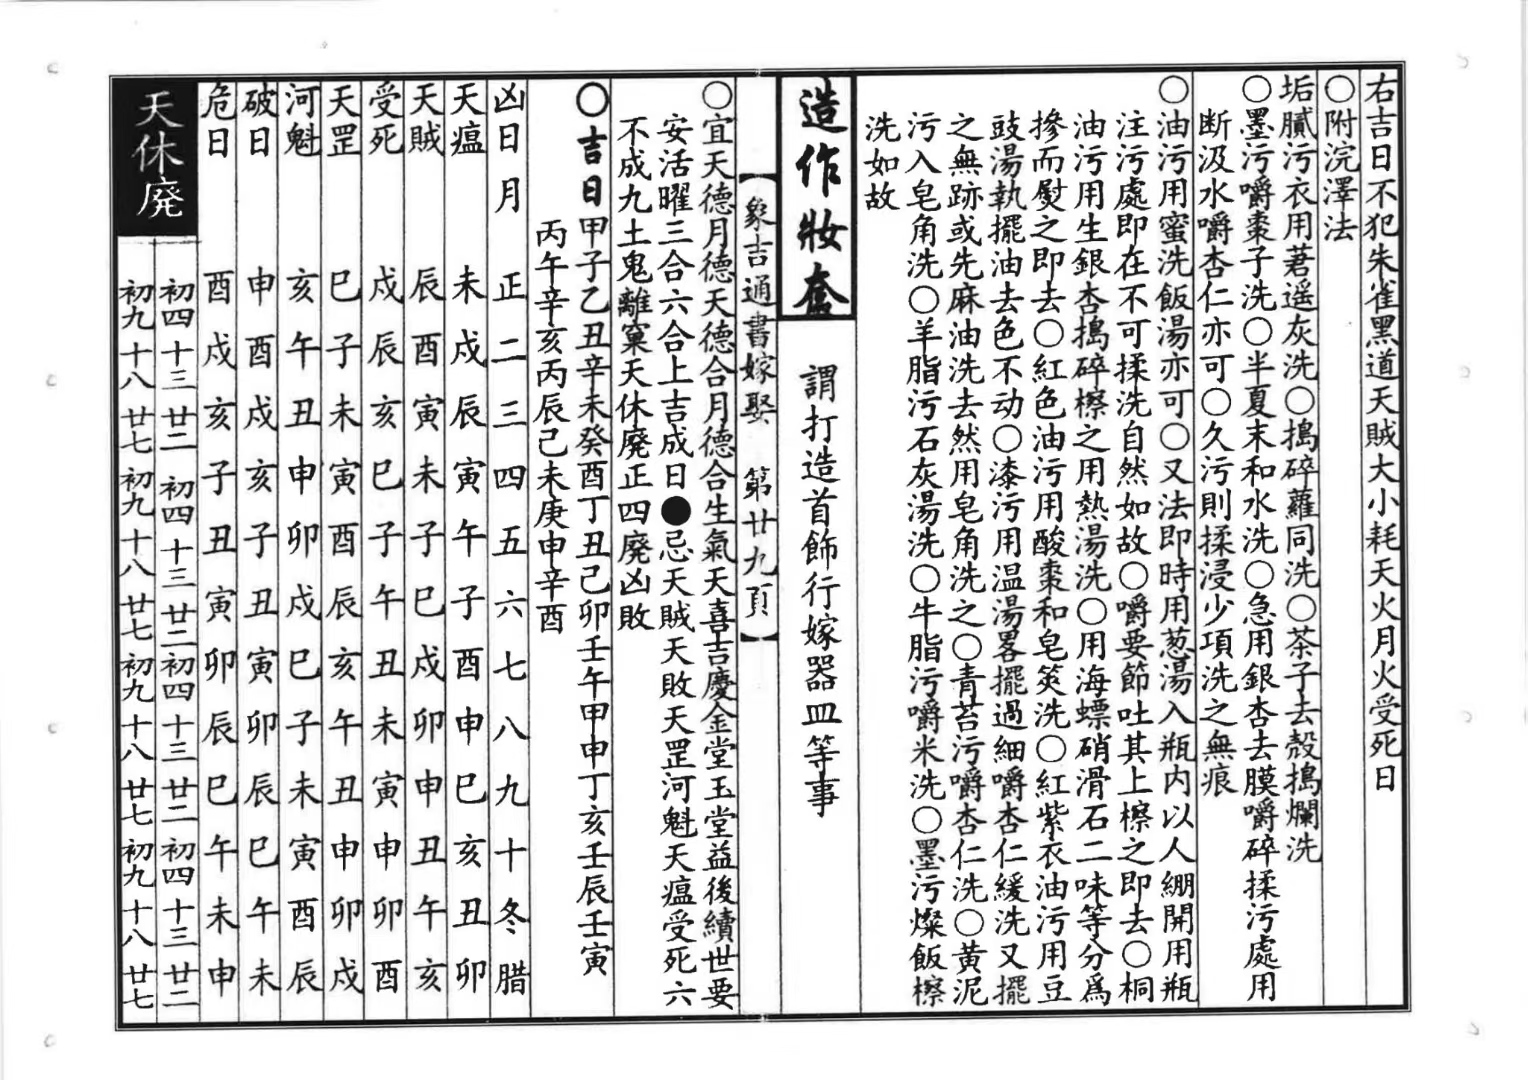 右吉日不犯朱雀黑道天賊大小耗天火月火受死日
〇附浣澤法
垢膩污衣用莙遥灰洗〇搗碎蘿同洗〇茶子去殼搗爛洗
〇墨污嚼棗子洗〇半夏末和水洗〇急用銀杏去膜嚼碎揉污處用
断汲水嚼杏仁亦可〇久污則揉浸少項洗之無痕
〇油污用蜜洗飯湯亦可〇又法即時用葱湯入瓶内以人綳開用瓶
注污處即在不可揉洗自然如故〇嚼要節吐其上檫之即去〇桐
油污用生銀杏搗碎檫之用熱湯洗〇用海螵硝滑石二味等分爲
摻而熨之即去〇紅色油污用酸棗和皂筴洗〇紅紫衣油污用豆
豉湯執擺油去色不动〇漆污用温湯畧擺過細嚼杏仁緩洗又擺
之無跡或先麻油洗去然用皂角洗之〇青苔污嚼杏仁洗〇黄泥
污入皂角洗〇羊脂污石灰湯洗〇牛脂污嚼米洗〇墨污燦飯檫
洗如故
造作妝奩 謂打造首飾行嫁器皿等事
【象吉通書嫁娶 第廿九頁】
〇宜天德月德天德合月德合生氣天喜吉慶金堂玉堂益後續世要
安活曜三合六合上吉成日●忌天賊天敗天罡河魁天瘟受死六
不成九土鬼離窠天休廢正四廢凶敗
〇吉日甲子乙丑辛未癸酉丁丑己卯壬午甲申丁亥壬辰壬寅
丙午辛亥丙辰己未庚申辛酉
凶日月 正二三四五六七八九十冬腊
天瘟 未戌辰寅午子酉申巳亥丑卯
天賊 辰酉寅未子巳戌卯申丑午亥
受死 戌辰亥巳子午丑未寅申卯酉
天罡 巳子未寅酉辰亥午丑申卯戌
河魁 亥午丑申卯戌巳子未寅酉辰
破日 申酉戌亥子丑寅卯辰巳午未
危日 酉戌亥子丑寅卯辰巳午未申
天休廢 初四十三廿二 初四十三廿二初四十三廿二初四十三廿二
初九十八廿七初九十八廿七初九十八廿七初九十八廿七